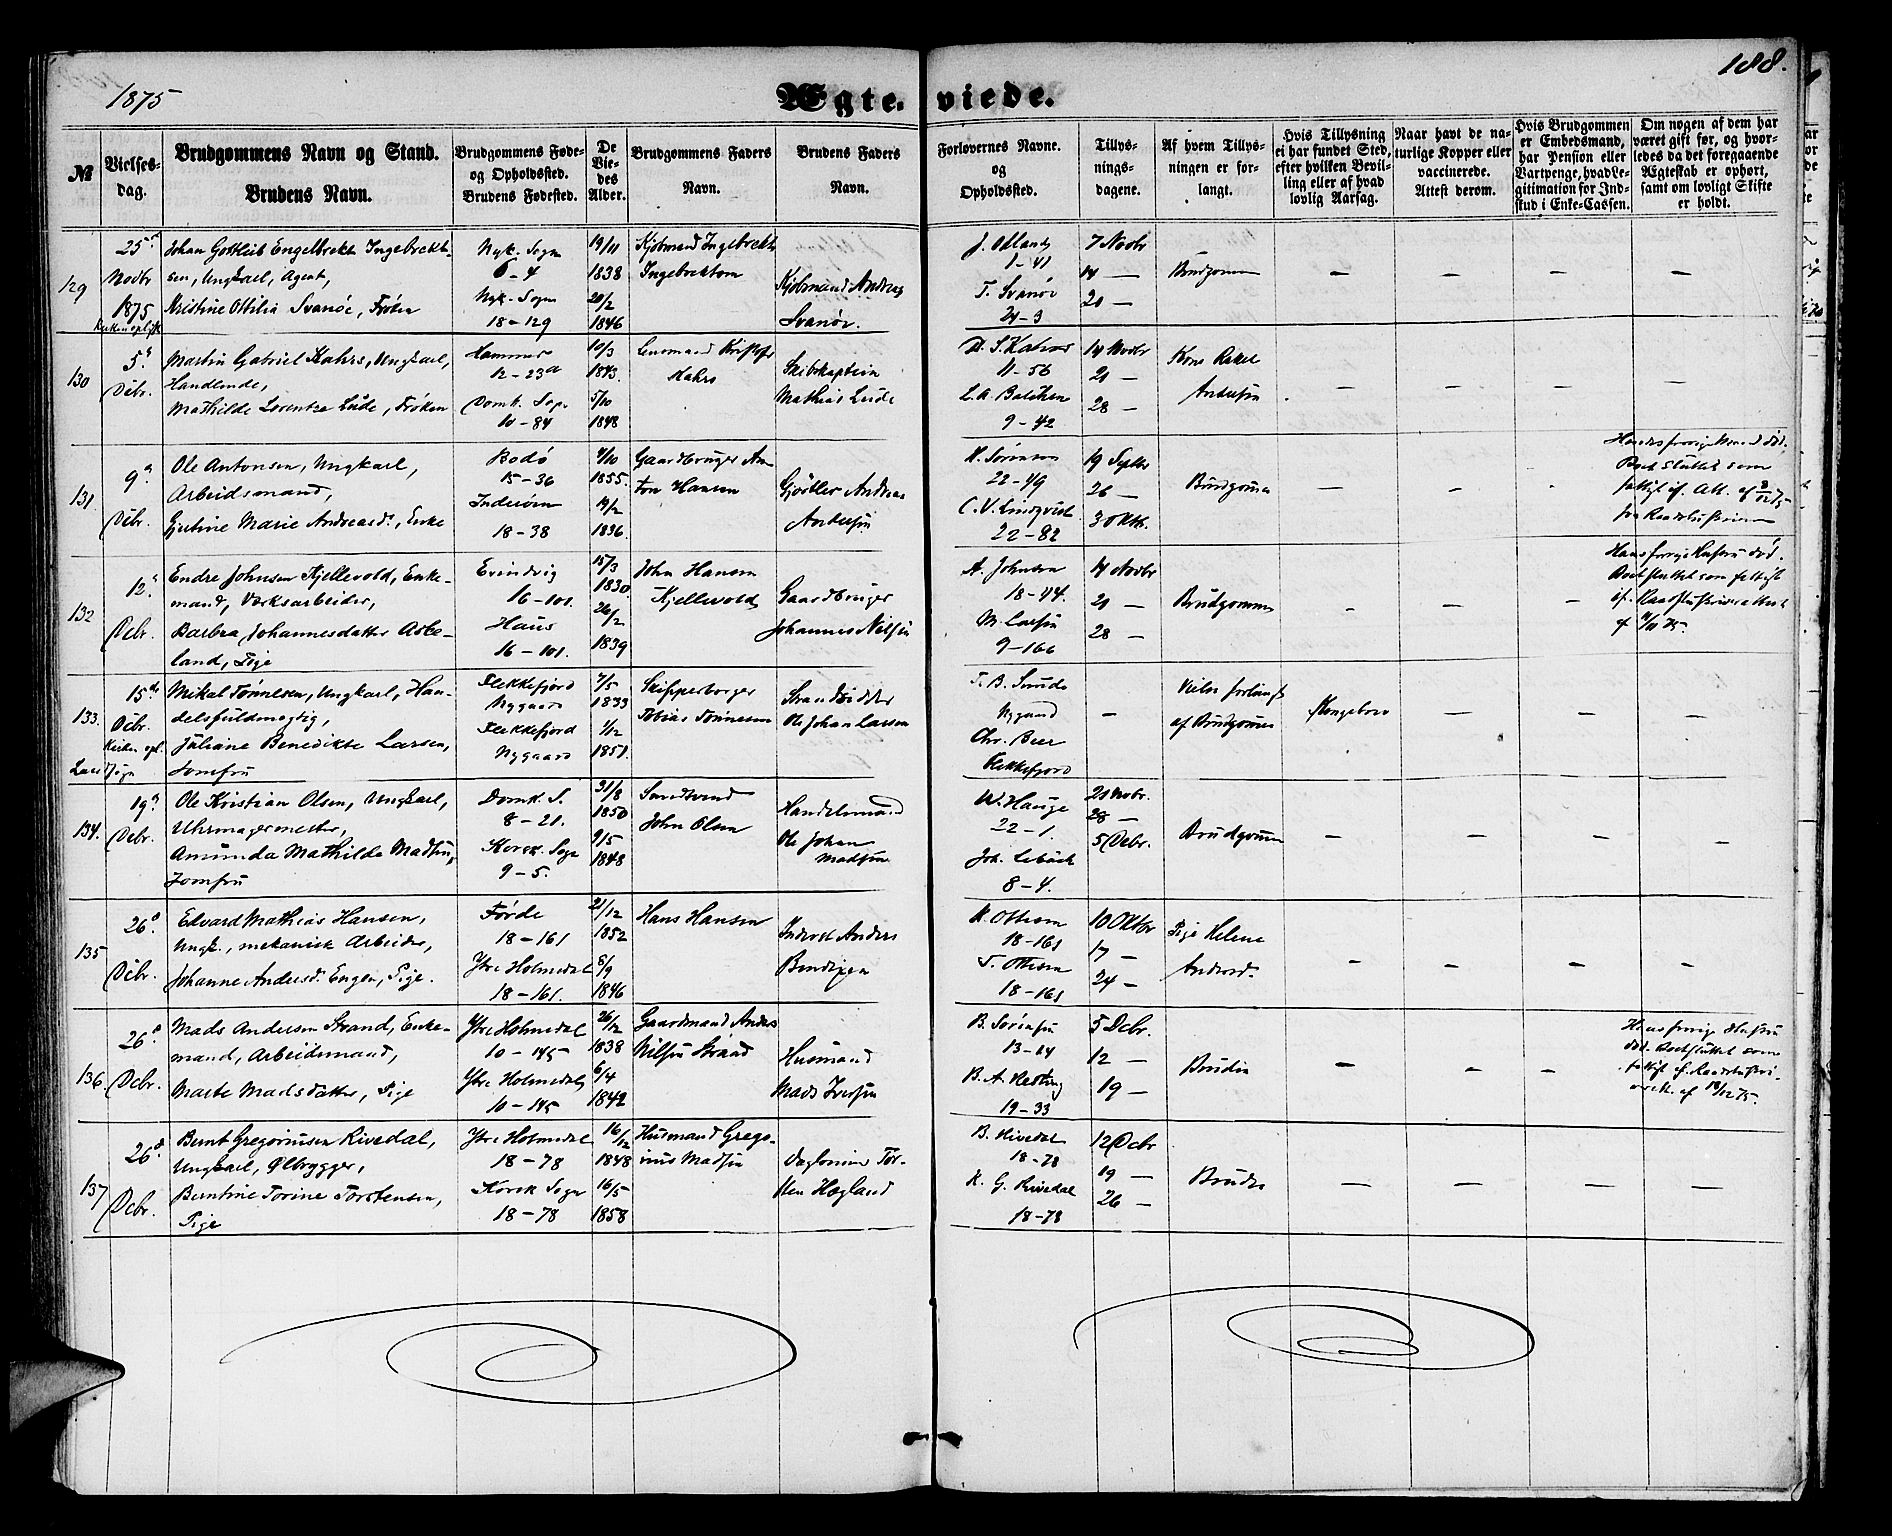 1875
Ægte-viede.
188.
№
Vielses-
dag.
Brudgommens Navn og Stand.
Brudens Navn.
Brudgommens Føde-
og Opholdssted.
Brudens Fødested.
De
Vie-
des
Alder.
Brudgommens Faders
Navn.
Brudens Faders
Navn.
Forlovernes Navne.
og
Opholdssted.
Tillys-
nings-
dagene.
Af hvem Tillys-
ningen er for-
langt.
Hvis Tillysning
ei har fundet Sted,
efter hvilken Bevil-
ling eller af hvad
lovlig Aarsag.
Naar havt de na-
turlige Kopper eller
vaccinerede.
Attest derom.
Hvis Brudgommen
er Embedsmand,
har Pension eller
Vartpenge, hvad Le-
gitimation for Ind-
skud i Enke-Cassen.
Om nogen af dem har
været gift før, og hvor-
ledes da det foregaaende
Ægteskab er ophørt,
samt om lovligt Skifte
er holdt.
129
25
Novbr
1875
Johan Gottlieb Engelbrekt Ingebrekt-
sen, Ungkarl, Agent,
Kristine Ottilia Svanøe, Frøken
Nyk. Sogn
6-4
Nyk. Sogn
18-129
19/11
1838
20/2
1846
Kjøbmand Ingebrekt
Ingebrektsen
Kjøbmand Andreas
Svanøe.
1-41
T. Svanøe
21-3
7 Novbr
14 —
21 —
Brudgommen
— — — —
130
5
Dcbr.
Martin Gabriel Kahrs, Ungkarl,
Handlende,
Mathilde Lorentze Lude, Frøken
Hammer
12-23a
Domk. Sogn
10-84
10/3
1843.
5/10
1848
Kahrs
Skibskaptein
Mathias Lude
11-56
9-42
14 Novbr
21 —
28 —
Kone Rakel
Andersen
— — — —
131
9
Dcbr.
Ole Antonsen, Ungkarl,
Arbeidsmand,
Gjertine Marie Andreasd., Enke
Bodø
15-36
Inderøen
18-38
4/10
1855.
19/2
1836.
Gaardbruger An-
ton Hansen
Gjørtler Andreas
Andersen
22-49
C. V. Lindqvist
22-82
19 Septbr
26 —
3 Oktb.
Brudgommen
— — —
Hendes forrige Mand død,
Boet sluttet som
fattigt
132
12
Dcbr.
Endre Johnsen Kjellevold, Enke-
mand, Værksarbeider,
Barbra Johannesdatter Aske-
land, Pige
Evindvig
16-101.
Haus
16-101.
15/3
1830.
26/2
1839
John Hansen
Kjellevold
Gaardbruger
Johannes Nilsen
A. Johnsen
18-44.
M. Larsen
9-166
14 Novbr
21 —
28 —
Brudgommen
— — —
Hans forrige Hustru død.
Boet sluttet som fattigt
133.
15
Dcbr.
Mikal Tønnesen, Ungkarl, Han-
delsfuldmegtig,
Juliane Benedikte Larsen,
Jomfru
Flekkefjord
Nygaard
Flekkefjord
Nygaard
7/5
1833
1/12
1851.
Skipperborger
Tobias Tønnesen
Strandsidder
Ole Johan Larsen
Nygaard
Chr. Beer
Flekkefjord
—
Vielse forlangt
af Brudgommen
Kongebrev
— — —
134.
19
Dcbr.
Ole Kristian Olsen, Ungkarl,
Uhrmagermester,
Amunda Mathilde Madsen,
Jomfru
Domk. S.
8-21.
Korsk. Sogn
9-5.
31/8
1850
9/5
1848
John Olsen
Handelsmand
Ole Johan
Madsen
W. Hauge
22-1.
8-4.
21 Novbr.
28 —
5 Dcbr.
Brudgommen
— — — —
135
26
Dcbr.
Edvard Mathias Hansen,
Ungk., mekanisk Arbeider,
Johanne Andersd. Engen, Pige.
Førde
18-161
Ytre Holmedal
18-161.
21/12
1852
8/9
1846
Hans Hansen
Inderst Anders
Bendixen
K. Ottesen
18-161
T. Ottesen
18-161
10 Oktbr
17 —
24 —
Pige Helene
Andersd.
— — — —
136.
26
Dcbr.
Mads Andersen Strand, Enke-
mand, Arbeidsmand,
Marte Madsdatter, Pige
Ytre Holmedal
10-145
Ytre Holmedal
10-145
26/12
1838
6/4
1842
Gaardmand Anders
Nilsen Strand
Husmand
Mads Iversen
B. Sørensen
13-14
19-33
5 Dcbr.
12 —
19 —
Bruden
— — —
Hans forrige Hustru
død. Boet sluttet som
137
26
Dcbr.
Bernt Gregoriussen Rivedal,
Ungkarl, Ølbrygger,
Berntine Torine Torstensen,
Pige
Ytre Holmedal
18-78
Korsk Sogn
18-78
16/12
1848
16/5
1858
Husmand Grego-
rius Madsen
Daglønner Tor-
sten Høgland
B. Rivedal
18-78
K. G. Rivedal
18-78
12 Dcbr
19 —
26 —
Bruden
— — — —